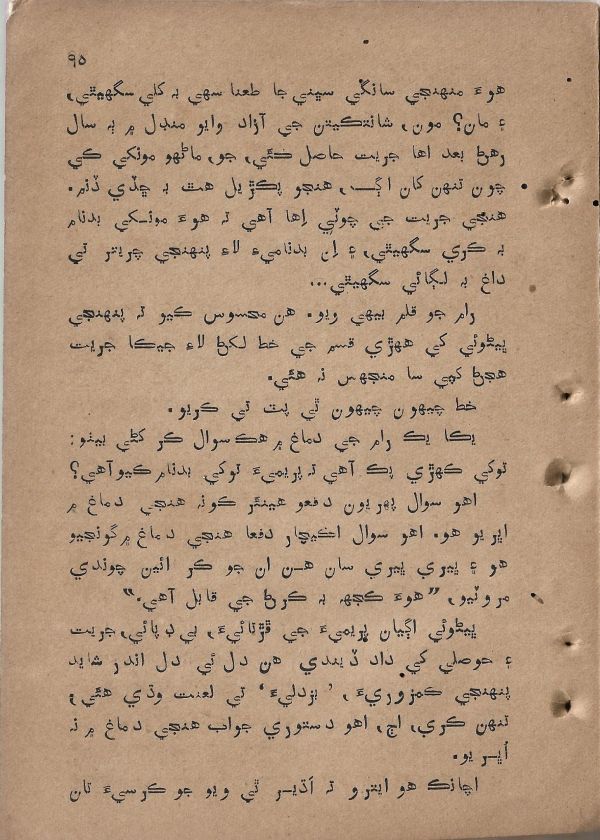 ۹۵
هوءَ منهنجي سانگي سڀني جا طعنا سهي به کلي سگهيٿي،
۽ مان؟ مون، شانتڪيتن جي آزاد وايو منڊل ۾ ٻه سال
رهڻ بعد اها جريت حاصل ڪئي، جو، ماڻهو مونکي ڪي
چون تنهن کان اڳ، هنجو پڪڙيل هٿ به ڇڏي ڏنم.
هنجي جريت جي چوٽي اِها آهي ته هوءَ مونکي بدنام
به ڪري سگهيٿي، ۽ اِن بدناميءَ لاءِ پنهنجي چرتر تي
داغ به لڳائي سگهيٿي...
رام جو قلم بيهي ويو. هن محسوس ڪيو ته پنهنجي
ڀيڻوئي کي ههڙي قسم جي خط لکڻ لاءِ جيڪا جريت
هجڻ کپي سا منجهس نه هئي.
خط چيهون چيهون ٿي پٽ تي ڪريو.
يڪا يڪ رام جي دماغ ۾ هڪ سوال ڪر کڻي بيٺو:
توکي ڪهڙي پڪ آهي ته پريميءَ توکي بدنام ڪيو آهي؟
اهو سوال پهريون دفعو هينئر ڪونه هنجي دماغ ۾
اڀريو هو. اهو سوال اڪيچار دفعا هنجي دماغ ۾ گونجيو
هو ۽ ڀيري ڀيري سان هن ان جو ڪر ائين چوندي
مروٽيو، ”هوءَ ڪجهه به ڪرڻ جي قابل آهي.“
ڀيڻوئي اڳيان پريميءَ جي ڦڙتائيءَ، بي ڊپائي، جريت
۽ حوصلي کي داد ڏيندي هن دل ئي دل اندر شايد
پنهنجي ڪمزوريءَ، ’بزدليءَ‘ تي لعنت وڌي هئي،
تنهن ڪري، اڄ، اهو دستوري جواب هنجي دماغ ۾ نه
اُڀريو.
اچانڪ هو ايترو ته اَڌير ٿي ويو جو ڪرسيءَ تان